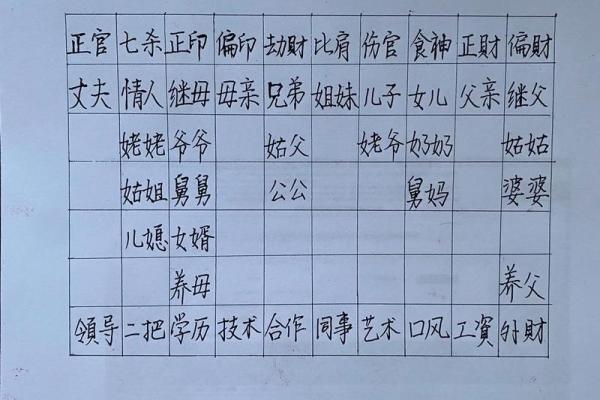 正官 七杀 正印 偏印 劫财 比肩 伤官 食神 正财 偏财
丈夫 情人 继母 母亲 兄弟 姐妹 儿子 女儿 父亲 继父
姥姥 爷爷 姑父 姥爷 奶奶 姑姑
姑姐 舅舅 公公 舅妈 婆婆
儿媳 女婿
养母 养父
領导 二把 学历 技术 合作 同事 艺术 口风 工資 外财